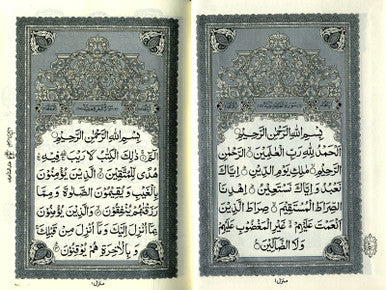 بِسْمِ اللهِ الرَّحْمٰنِ الرَّحِيْمِ
اَلْحَمْدُ لِلّٰهِ رَبِّ الْعٰلَمِيْنَ ۙ الرَّحْمٰنِ
الرَّحِيْمِ ۙ مٰلِكِ يَوْمِ الدِّيْنِ ؕ اِيَّاكَ
نَعْبُدُ وَ اِيَّاكَ نَسْتَعِيْنُ ؕ اِهْدِنَا
الصِّرَاطَ الْمُسْتَقِيْمَ ۙ صِرَاطَ الَّذِيْنَ
اَنْعَمْتَ عَلَيْهِمْ غَيْرِ الْمَغْضُوْبِ عَلَيْهِمْ
وَلَا الضَّآلِّيْنَ
منزل ۱
بِسْمِ اللهِ الرَّحْمٰنِ الرَّحِيْمِ
الٓمّٓ ۚ ذٰلِكَ الْكِتٰبُ لَا رَيْبَ فِيْهِ
هُدًى لِّلْمُتَّقِيْنَ ۙ الَّذِيْنَ يُؤْمِنُوْنَ
بِالْغَيْبِ وَ يُقِيْمُوْنَ الصَّلٰوةَ وَ مِمَّا
رَزَقْنٰهُمْ يُنْفِقُوْنَ ۙ وَ الَّذِيْنَ يُؤْمِنُوْنَ
بِمَآ اُنْزِلَ اِلَيْكَ وَ مَآ اُنْزِلَ مِنْ قَبْلِكَ
وَ بِالْاٰخِرَةِ هُمْ يُوْقِنُوْنَ
منزل ۱